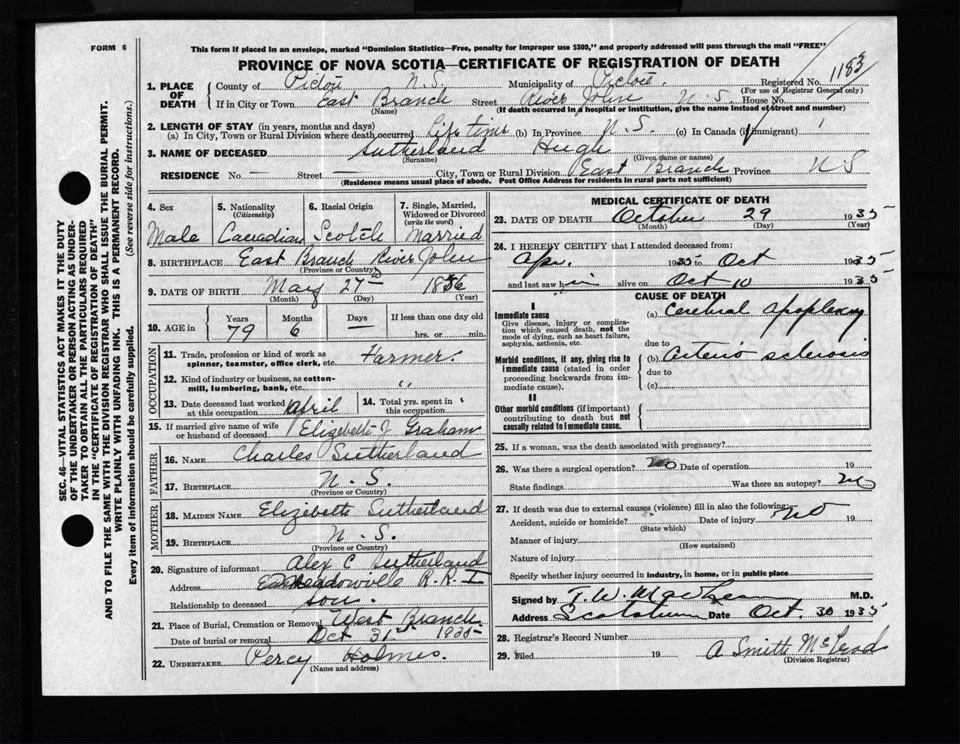 FORM 6
This form if placed in an envelope, marked "Dominion Statistics—Free, penalty for improper use $300," and properly addressed will pass through the mail "FREE"
PROVINCE OF NOVA SCOTIA—CERTIFICATE OF REGISTRATION OF DEATH
1183
1. PLACE OF DEATH
County of Pictou N.S. Municipality of Pictou Registered No.
(For use of Registrar General only)
If in City or Town East Branch Street River John N.S. House No.
(Name) (If death occurred in a hospital or institution, give the name instead of street and number)
2. LENGTH OF STAY (in years, months and days)
(a) In City, Town or Rural Division where death occurred Life time (b) In Province N.S. (c) In Canada (if immigrant)
3. NAME OF DECEASED Sutherland Hugh
(Surname) (Given name or names)
RESIDENCE No — Street — City, Town or Rural Division East Branch Province N S
(Residence means usual place of abode. Post Office Address for residents in rural parts not sufficient)
SEC. 46—VITAL STATISTICS ACT MAKES IT THE DUTY
OF THE UNDERTAKER OR PERSON ACTING AS UNDER-
TAKER TO OBTAIN ALL THE PARTICULARS REQUIRED
IN THE "CERTIFICATE OF REGISTRATION OF DEATH"
AND TO FILE THE SAME WITH THE DIVISION REGISTRAR WHO SHALL ISSUE THE BURIAL PERMIT.
WRITE PLAINLY WITH UNFADING INK. THIS IS A PERMANENT RECORD.
Every item of information should be carefully supplied. (See reverse side for instructions.)
4. Sex 5. Nationality (Citizenship) 6. Racial Origin 7. Single, Married, Widowed or Divorced (write the word)
Male Canadian Scotch Married
8. BIRTHPLACE East Branch River John
(Province or Country)
9. DATE OF BIRTH May 27th 1856
(Month) (Day) (Year)
10. AGE in Years Months Days If less than one day old
79 6 — hrs. or min.
OCCUPATION
11. Trade, profession or kind of work as spinner, teamster, office clerk, etc. Farmer.
12. Kind of industry or business, as cotton-mill, lumbering, bank, etc. "
13. Date deceased last worked at this occupation April 14. Total yrs. spent in this occupation
15. If married give name of wife or husband of deceased Elizabeth J. Graham
FATHER
16. NAME Charles Sutherland
17. BIRTHPLACE N.S.
(Province or Country)
MOTHER
18. MAIDEN NAME Elizabeth Sutherland
19. BIRTHPLACE N.S.
(Province or Country)
20. Signature of informant Alex C Sutherland
Address Meadowville R.R. I
Relationship to deceased son.
21. Place of Burial, Cremation or Removal West Branch.
Date of burial or removal Oct 31st 1935
22. UNDERTAKER Percy Holmes.
(Name and address)
MEDICAL CERTIFICATE OF DEATH
23. DATE OF DEATH October 29 1935
(Month) (Day) (Year)
24. I HEREBY CERTIFY that I attended deceased from:
Apr. 1935 to Oct 1935
and last saw him alive on Oct 10 1935
CAUSE OF DEATH
I
Immediate cause
Give disease, injury or complication which caused death, not the mode of dying, such as heart failure, asphyxia, asthenia, etc.
(a) Cerebral apoplexy
due to
Morbid conditions, if any, giving rise to immediate cause (stated in order proceeding backwards from immediate cause).
(b) Arterio sclerosis
due to
(c)
II
Other morbid conditions (if important) contributing to death but not causally related to immediate cause.
25. If a woman, was the death associated with pregnancy?
26. Was there a surgical operation? no Date of operation 19
State findings Was there an autopsy? no
27. If death was due to external causes (violence) fill in also the following:
Accident, suicide or homicide? Date of injury no 19
(State which)
Manner of injury
(How sustained)
Nature of injury
Specify whether injury occurred in industry, in home, or in public place
Signed by T.W. M.D.
Address Scotsburn Date Oct. 30 1935
28. Registrar's Record Number
29. Filed 19 A Smith McLeod
(Division Registrar)